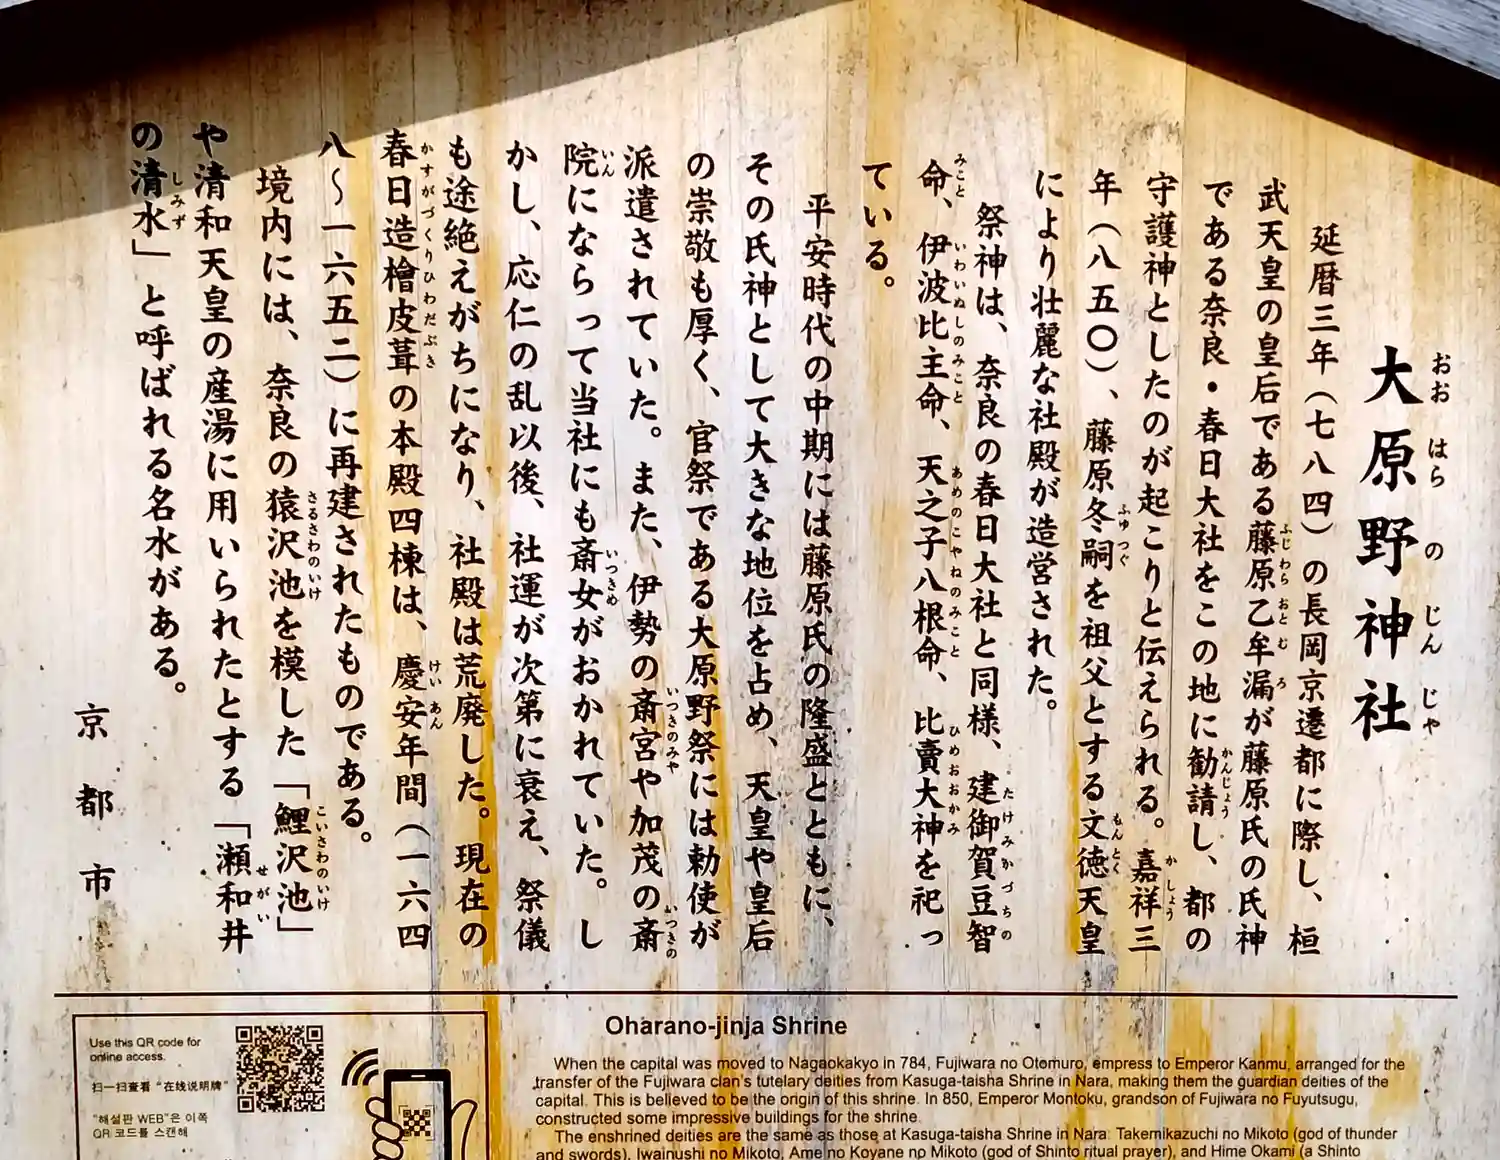 大原野神社
おおはらのじんじゃ
延暦三年(七八四)の長岡京遷都に際し、桓
武天皇の皇后である藤原乙牟漏が藤原氏の氏神
ふじわらおとむろ
である奈良・春日大社をこの地に勧請し、都の
かんじょう
守護神としたのが起こりと伝えられる。嘉祥三
かしょう
年(八五〇)、藤原冬嗣を祖父とする文徳天皇
ふゆつぐ もんとく
により壮麗な社殿が造営された。
祭神は、奈良の春日大社と同様、建御賀豆智
たけみかづちの
命、伊波比主命、天之子八根命、比賣大神を祀っ
みこと いわいぬしのみこと あめのこやねのみこと ひめおおかみ
ている。
平安時代の中期には藤原氏の隆盛とともに、
その氏神として大きな地位を占め、天皇や皇后
の崇敬も厚く、官祭である大原野祭には勅使が
派遣されていた。また、伊勢の斎宮や加茂の斎
いつきのみや いつきの
院にならって当社にも斎女がおかれていた。し
いん いつきめ
かし、応仁の乱以後、社運が次第に衰え、祭儀
も途絶えがちになり、社殿は荒廃した。現在の
春日造檜皮葺の本殿四棟は、慶安年間(一六四
かすがづくりひわだぶき けいあん
八〜一六五二)に再建されたものである。
境内には、奈良の猿沢池を模した「鯉沢池」
さるさわのいけ こいさわのいけ
や清和天皇の産湯に用いられたとする「瀬和井
せがい
の清水」と呼ばれる名水がある。
しみず
京都市
Use this QR code for
online access.
扫一扫查看“在线说明牌”
“해설판 WEB”은 이쪽
QR 코드를 스캔해
Oharano-jinja Shrine
When the capital was moved to Nagaokakyo in 784, Fujiwara no Otomuro, empress to Emperor Kanmu, arranged for the
transfer of the Fujiwara clan's tutelary deities from Kasuga-taisha Shrine in Nara, making them the guardian deities of the
capital. This is believed to be the origin of this shrine. In 850, Emperor Montoku, grandson of Fujiwara no Fuyutsugu,
constructed some impressive buildings for the shrine.
The enshrined deities are the same as those at Kasuga-taisha Shrine in Nara: Takemikazuchi no Mikoto (god of thunder
and swords), Iwainushi no Mikoto, Ame no Koyane no Mikoto (god of Shinto ritual prayer), and Hime Okami (a Shinto